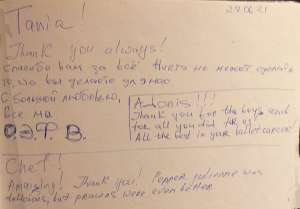 Tania!
24.06.21
Thank you always!
Спасибо вам за всё! Никто не может сделать
то, что вы делаете для нас
С большой любовью,
все мы
О.Э.Ф. В.
Adonis!!!
Thank you for the boys and
for all you did for us!
All the best in your ballet career!
Chef!
Amazing! Thank you! Pepper julienne was
delicious, but prawns were even better